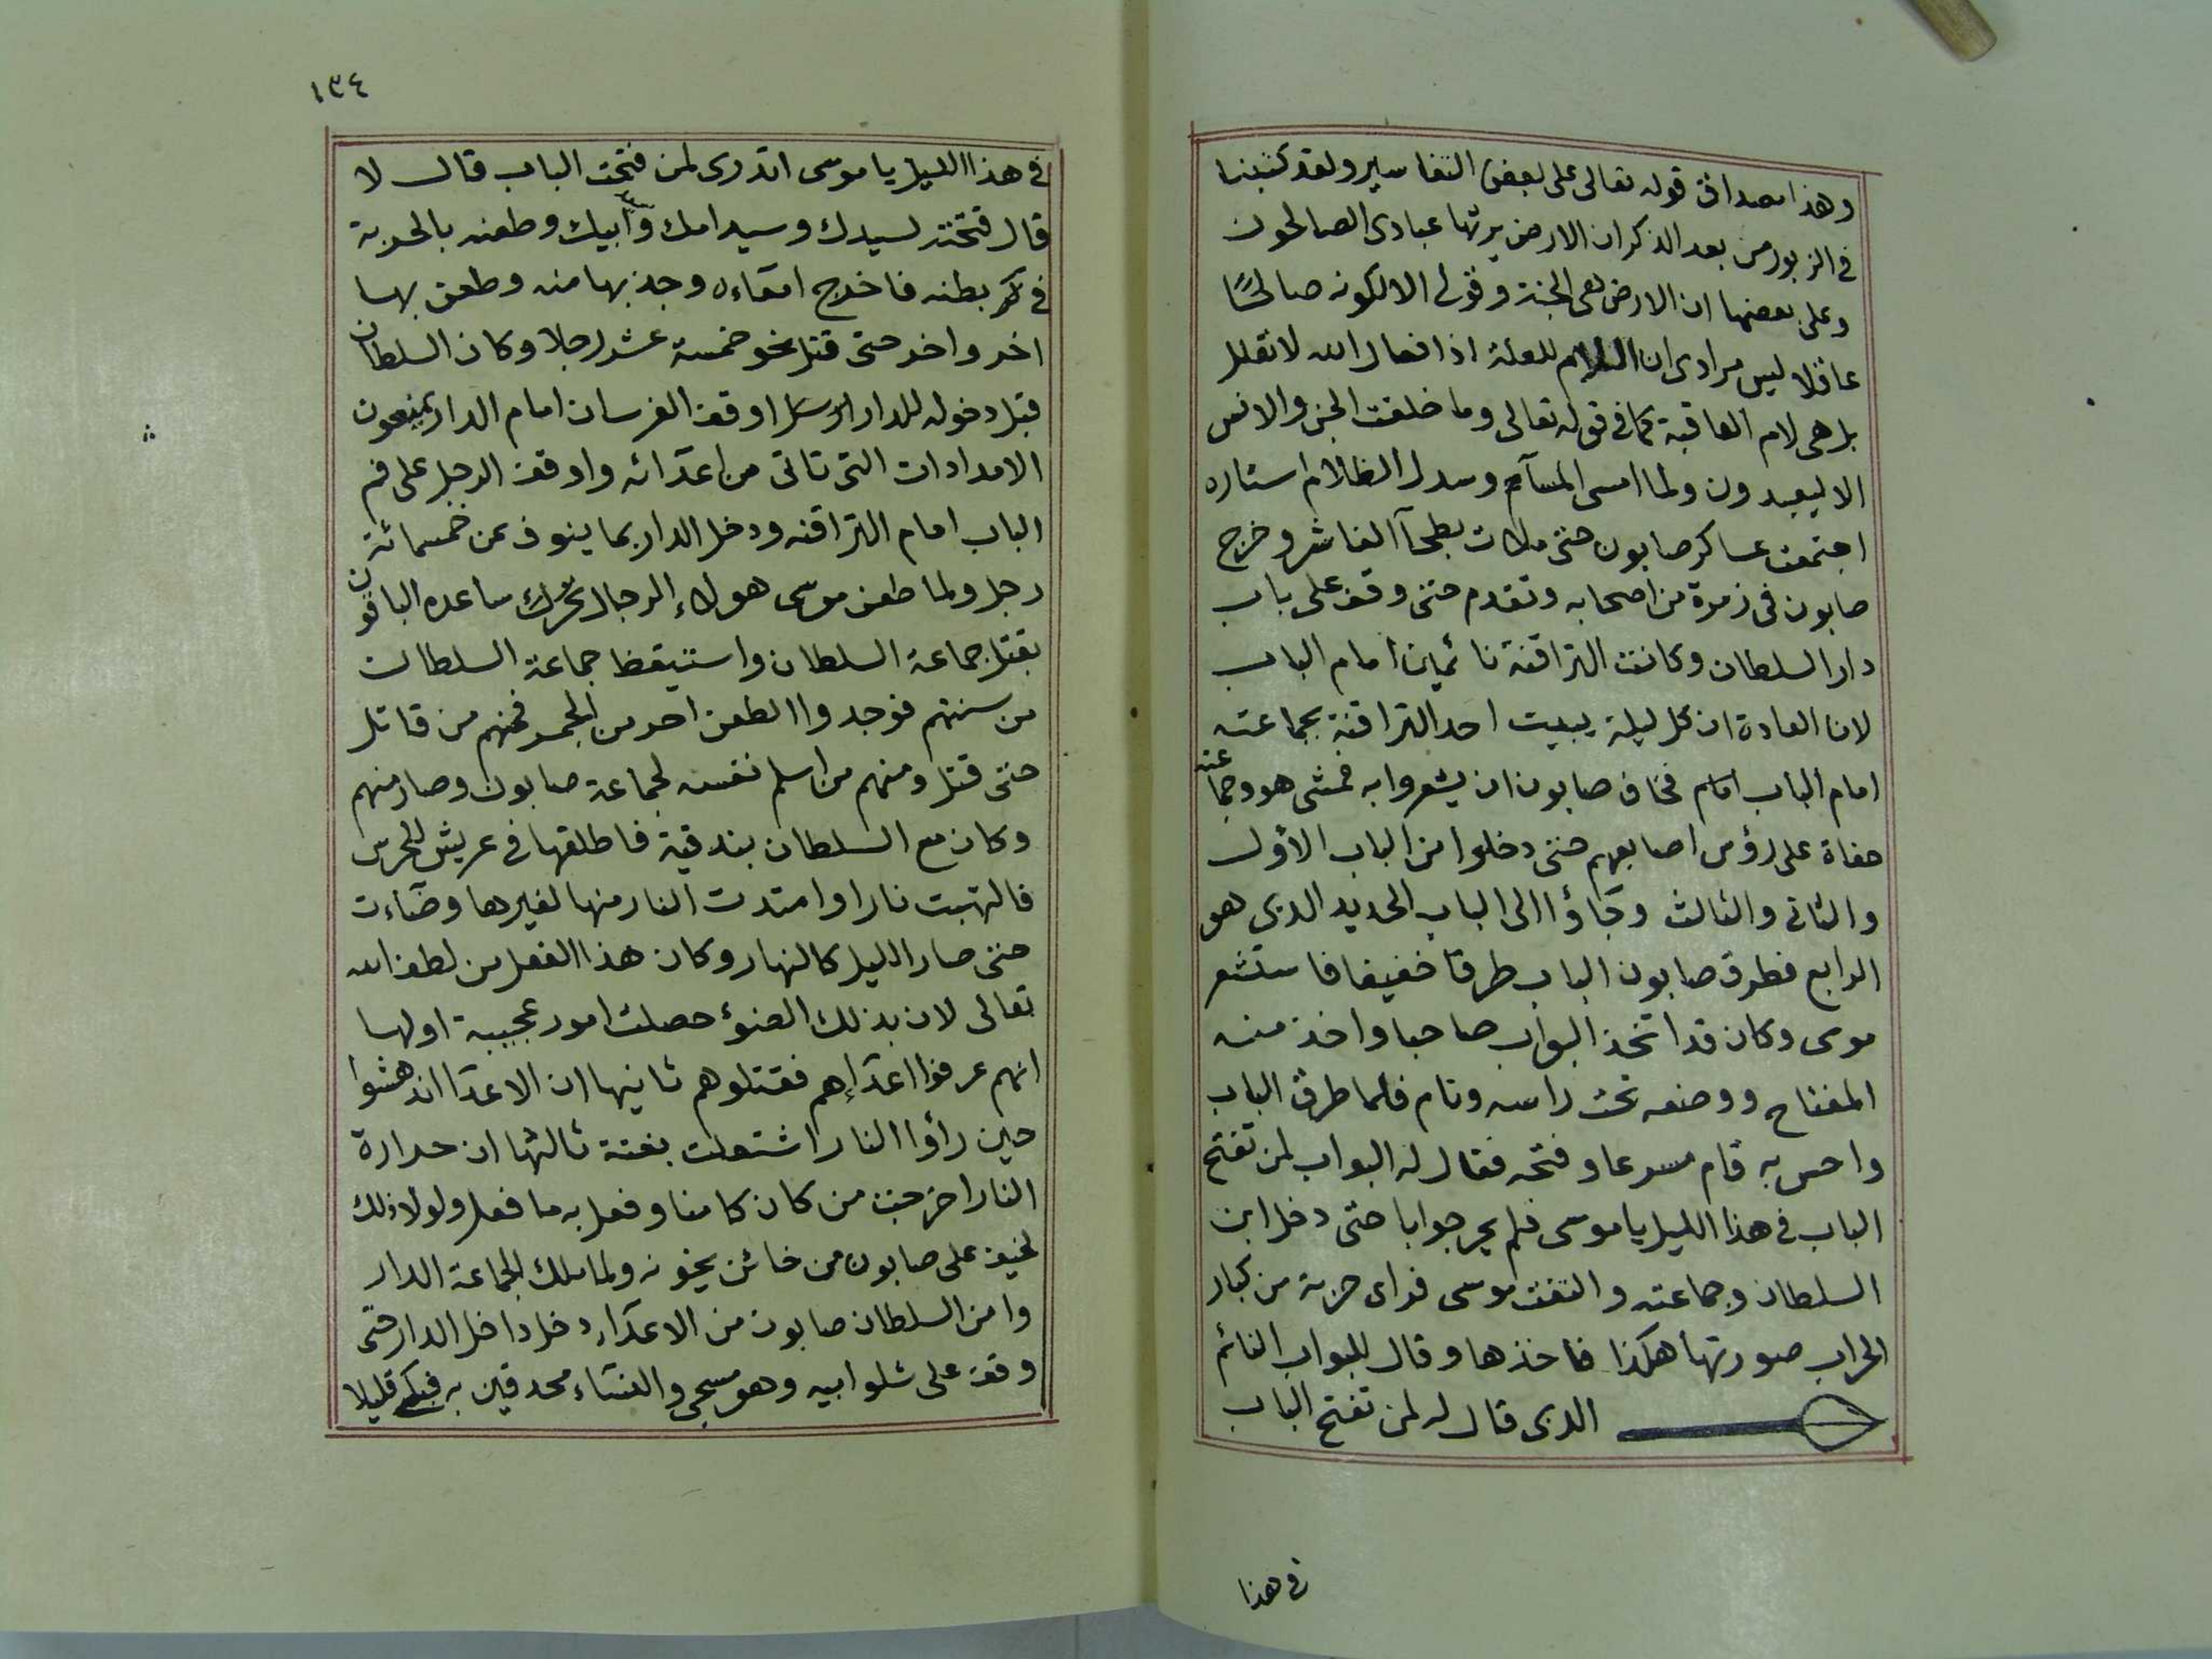 وهذا مصداق قوله تعالى على بعض التفاسير ولقد كتبنا
في الزبور من بعد الذكر ان الارض يرثها عبادى الصالحون
وعلى بعضها ان الارض هى الجنة وقولى الا لكونه صالحًا
عاقلا ليس مرادى ان اللام للعلة اذ افعال الله لا تعلل
بل هى لام العاقبة كما في قوله تعالى وما خلقت الجن والانس
الا ليعبدون ولما امسى المسآء وسدل الظلام استاره
اجتمعت عساكر صابون حتى ملات بطحآ الفاشر وخرج
صابون في زمرة من اصحابه وتقدم حتى وقف على باب
دار السلطان وكانت التراقنة نائمين امام الباب
لان العادة ان كل ليلة يبيت احد التراقنة بجماعته
امام الباب فخاف صابون ان يشعروا به فمشى هو وجماعته
حفاة على رؤس اصابعهم حتى دخلوا من الباب الأول
والثانى والثالث وجآؤا الى الباب الحديد الدى هو
الرابع فطرق صابون الباب طرقا خفيفا فاستشعر
موسى وكان قد اتخذ البواب صاحبا واخذ منه
المفتاح ووضعه تحت راسه ونام فلما طرق الباب
واحس به قام مسرعا وفتحه فقال له البواب لمن تفتح
الباب في هذا الليل يا موسى فلم يحر جوابا حتى دخل ابن
السلطان وجماعته والتفت موسى فراى حربة من كبار
الحراب صورتها هكذا فاخذها وقال للبواب النائم
الدى قال له لمن تفتح الباب
في هذا
١٣٤
في هذا الليل يا موسى اتدرى لمن فتحت الباب قال لا
قال فتحته لسيدك وسيد امك وابيك وطعنه بالحربة
في بطنه فاخرج امعآءه وجذبها منه وطعن بها
اخر واخر حتى قتل نحو خمسة عشر رجلا وكان السلطان
قبل دخوله للدار اوقف الفرسان امام الدار يمنعون
الامدادات التى تاتى من اعدآئه واوقف الرجل على فم
الباب امام التراقنه ودخل الدار بما ينوف عن خمسمائة
رجل ولما طعن موسى هولاء الرجال تحرك ساعده الباقون
بقتل جماعة السلطان واستيقظ جماعة السلطان
من سنتهم فوجدوا الطعن احر من الجمر فمنهم من قاتل
حتى قتل ومنهم من اسلم نفسه لجماعة صابون وصار منهم
وكان مع السلطان بندقية فاطلقها في عريش للحرس
فالتهبت نارا وامتدت النار منها لغيرها وضآءت
حتى صار الليل كالنهار وكان هذا الفعل من لطف الله
تعالى لان بذلك الضوء حصلت امور عجيبة اولها
انهم عرفوا اعدآءهم فقتلوهم ثانيها ان الاعدآ اندهشوا
حين رأوا النار اشتعلت بغتة ثالثها ان حرارة
النار اخرجت من كان كامنا وفعل به ما فعل ولولا ذلك
لخيف على صابون من خائن يخونه ولما ملك الجماعة الدار
وامن السلطان صابون من الاعدآء دخل داخل الدار حتى
وقف على شلو ابيه وهو مسجى والنسآء محدقين به فبكى قليلا